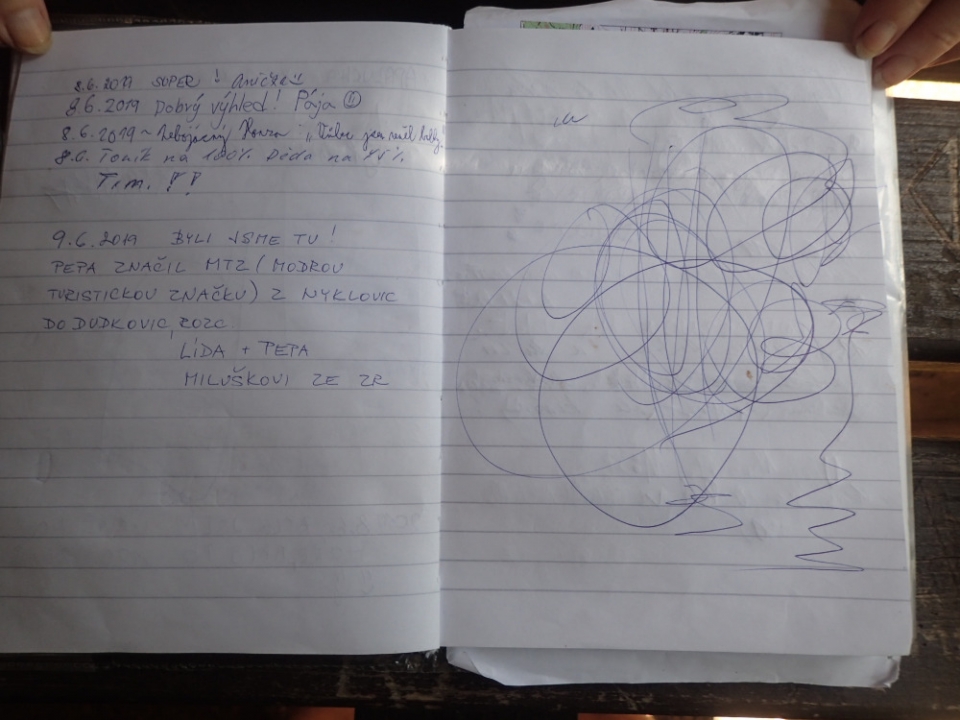 8.6.2019 SUPER ! Anička
8.6.2019 Dobrý výhled! Pája
8.6.2019 ~ Nebojácný Honza "Vůbec jsem neměl
8.6. Toník na 100% Děda na 45%
Tým. !!
9.6.2019 BYLI JSME TU !
PEPA ZNAČIL MTZ (MODROU
TURISTICKOU ZNAČKU) Z NYKLOVIC
DO DUDKOVIC, ROZC.
LÍDA + PEPA
MILUŠKOVI ZE ZR